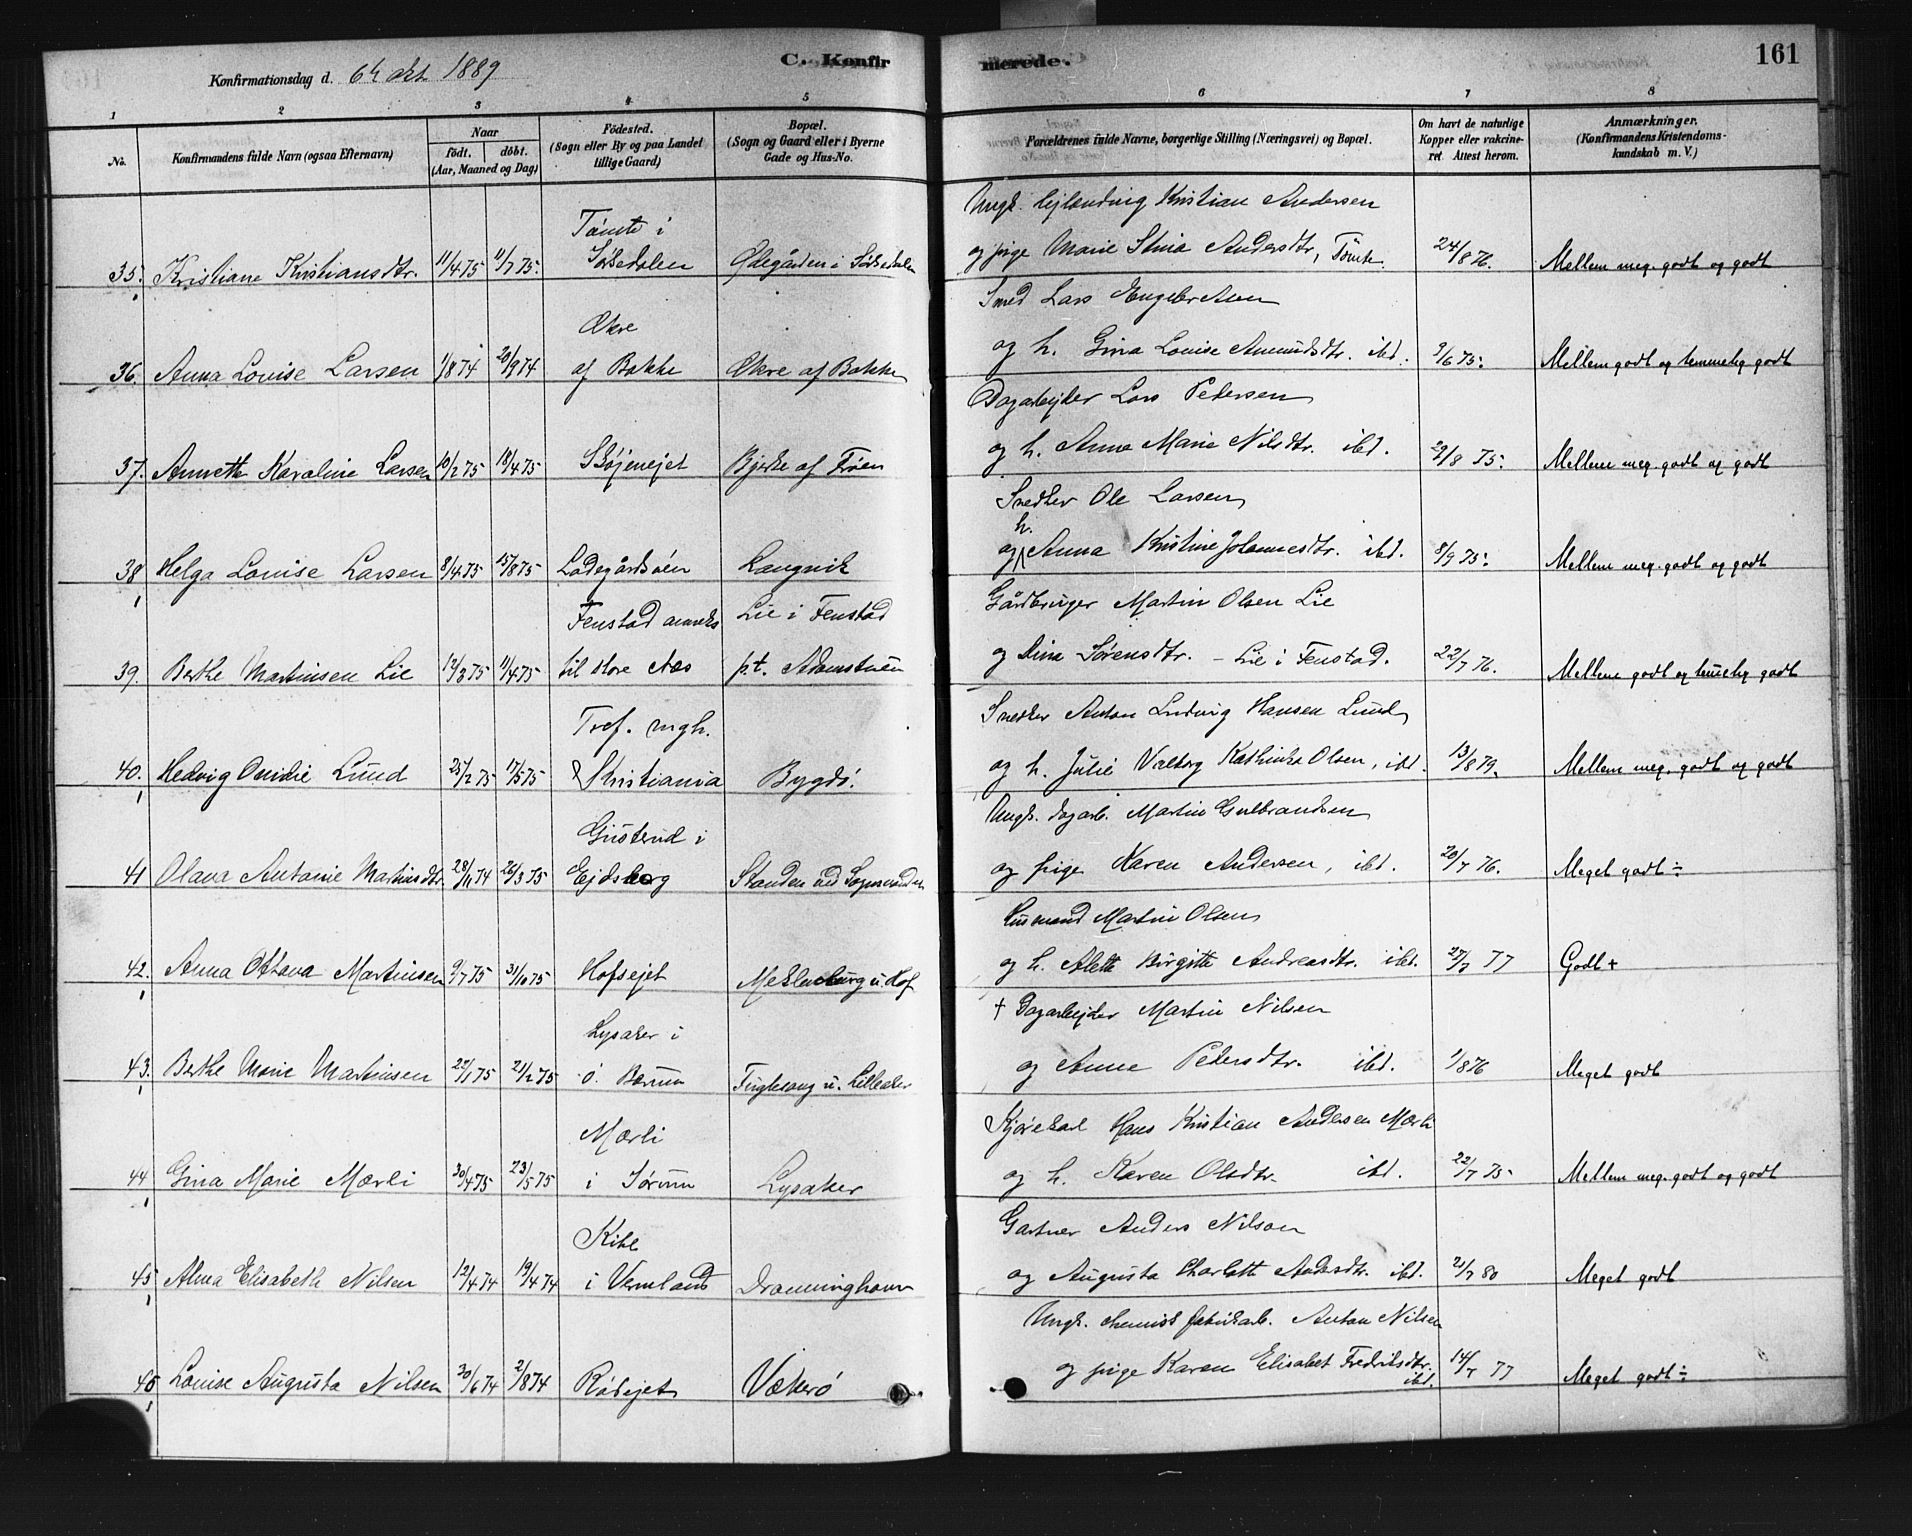 161
C. Konfirmerede.
Konfirmationsdag d. 6te okt. 1889
1 2 3 4 5 6 7 8
No.
Konfirmandens fulde Navn (ogsaa Efternavn)
Naar
födt. döbt.
(Aar, Maaned og Dag)
Födested.
(Sogn eller By og paa Landet
tillige Gaard)
Bopæl.
(Sogn og Gaard eller i Byerne
Gade og Hus-No.
Forældrenes fulde Navne, borgerlige Stilling (Næringsvei) og Bopæl.
Om havt de naturlige
Kopper eller vakcine-
ret. Attest herom.
Anmærkninger.
(Konfirmandens Kristendoms-
kundskab m. V.)
Ungk. Kristian Andersen
Tömte i
35. Kristiane Kristiansdtr. 11/4 75 11/7 75. Sörkedalen Ødegården i Sörkedalen og pige Marie Stina Andersdtr, Tömte. 24/8 76. Mellem meg. godt og godt
Smed Lars Engebretsen
Økre
36. Anna Louise Larsen 1/8 74 20/9 74 af Bakke Økre af Bakke og h. Gina Louise Amundsdtr. ibd. 9/6 75. Mellem godt og temmelig godt
Dagarbejder Lars Petersen
37. Annette Karoline Larsen 10/2 75 18/4 75 Skøjenejet Bjerke af Frøen og h. Anne Marie Nilsdtr. ibd. 29/8 75. Mellem meg. godt og godt
Snedker Ole Larsen
h.
38 Helga Louise Larsen 8/4 75 15/8 75 Ladegårdsöen Langvik og Anna Kristine Johannesdtr. ibd. 8/9 75. Mellem meg. godt og godt
Gårdbruger Martin Olsen Lie
Fenstad anneks Lie i Fenstad
39. Berthe Martinsen Lie 12/3 75 11/4 75 til store Næs p.t. Adamstuen og Dina Sørensdtr. - Lie i Fenstad. 22/7 76. Mellem godt og temelig godt
Snedker Anton Ludvig Hansen Lund
Tref. mgh.
40. Hedvig Ovidie Lund 25/2 75 17/5 75 Kristiania Bygdö. og h. Julie Valborg Kathinka Olsen, ibd. 13/8 79. Mellem meg. godt og godt
Ungk. dagarb. Martin Gulbrandsen
Gusterud i
41 Olava Antonie Martinsdtr 28/11 74 26/3 75 Ejdsberg Standen ved Sognsvandet og pige Karen Andersen, ibd. 20/7 76. Meget godt ÷
Husmand Martin Olsen
42. Anna Ottava Martinsen 9/7 75 31/10 75 Hofsejet Meklenburg u. Hof og h. Alette Birgitte Andreasdtr. ibd. 27/3 77 Godt +
† Dagarbejder Martin Nilsen
Lysaker i
43. Berthe Marie Martinsen 22/1 75 21/2 75 ö. Bærum Fuglesang u. Lilleaker og Anne Petersdtr. ibd. 1/8 76 Meget godt
Kjørekarl Hans Kristian Andersen Mærli
Mærli
44 Gina Marie Mærli 30/4 75 23/5 75 i Sørum Lysaker og h. Karen Olsdtr. ibd. 22/7 75 Mellem meg. godt og godt
Gartner Anders Nilson
Kihl
45 Alma Elisabeth Nilsen 12/4 74 19/4 74 i Vermland Dronninghavn og Augusta Charlotte Andersdtr. ibd. 21/7 80 Meget godt
Ungk. chemisk fabrikarb. Anton Nilsen
46 Louise Augusta Nilsen 30/6 74 2/8 74 Rödejet Vækerö og pige Karen Elisabet Fredriksdtr. 14/7 77 Meget godt ÷
ibd.